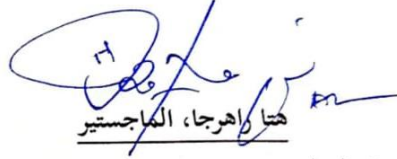 هتا راهرجا، الماجستير